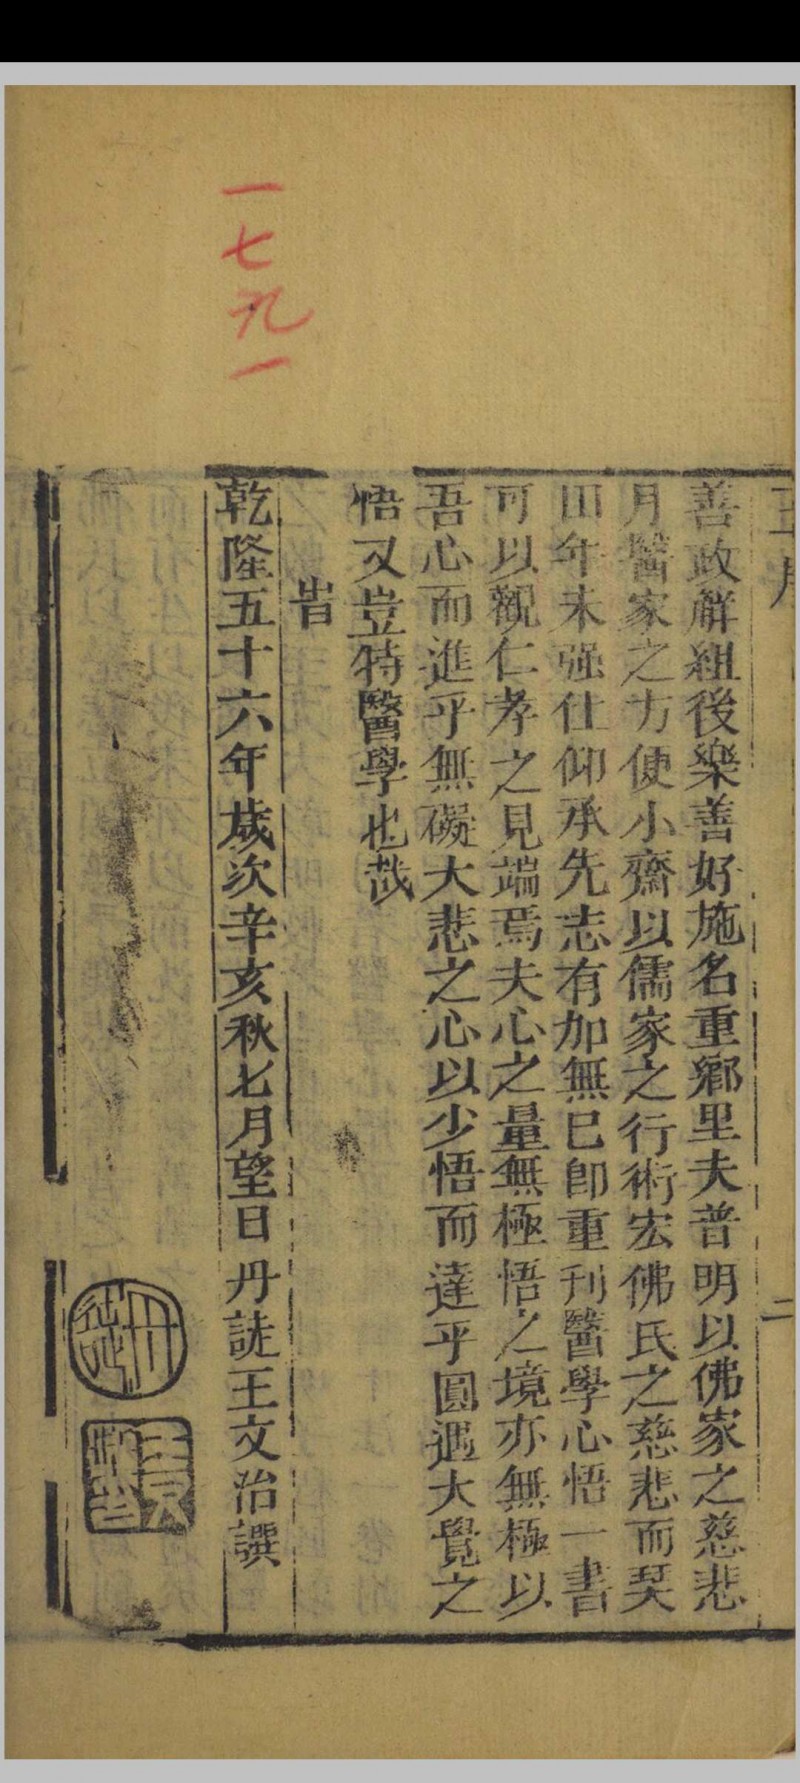 一七九一
善政解組後樂善好施名重鄉里夫普明以佛家之慈悲
月醫家之方便小齋以儒家之行術宏佛氏之慈悲而琹
田年未强仕仰承先志有加無已卽重刊醫學心悟一書
可以觀仁孝之見端焉夫心之量無極悟之境亦無極以
吾心而進乎無礙大悲之心以少悟而達乎圓遇大覺之
悟又豈特醫學也哉
旹
乾隆五十六年歲次辛亥秋七月望日丹詿王文治譔
二